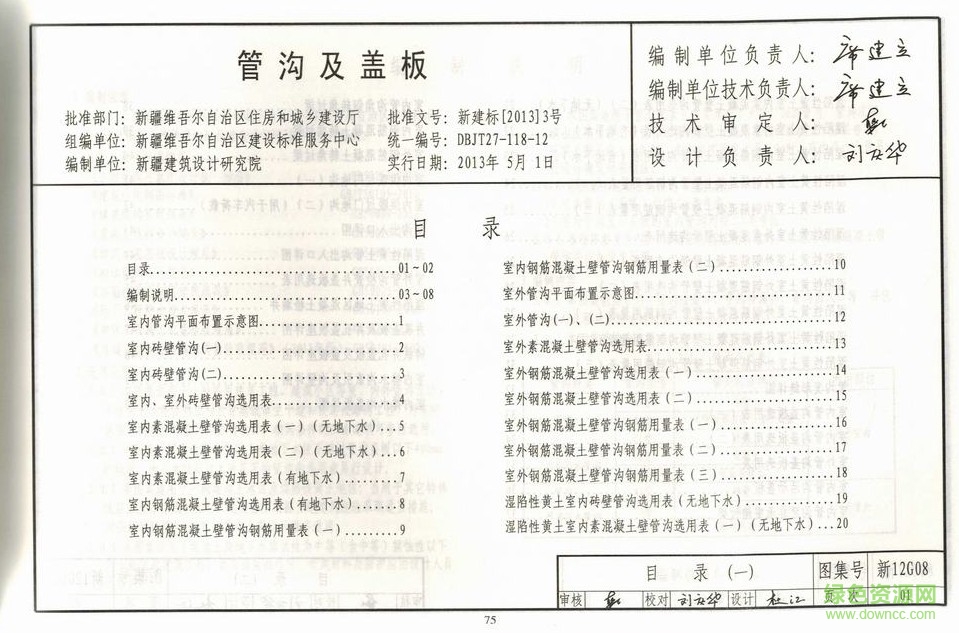 管沟及盖板
批准部门: 新疆维吾尔自治区住房和城乡建设厅 批准文号: 新建标[2013]3号
组编单位: 新疆维吾尔自治区建设标准服务中心 统一编号: DBJT27-118-12
编制单位: 新疆建筑设计研究院 实行日期: 2013年 5月 1日
编制单位负责人: 席建立
编制单位技术负责人: 席建立
技术审定人:
设计负责人: 刘友华
目 录
目录...01~02
编制说明...03~08
室内管沟平面布置示意图...1
室内砖壁管沟(一)...2
室内砖壁管沟(二)...3
室内、室外砖壁管沟选用表...4
室内素混凝土壁管沟选用表(一)(无地下水)...5
室内素混凝土壁管沟选用表(二)(无地下水)...6
室内素混凝土壁管沟选用表(有地下水)...7
室内钢筋混凝土壁管沟选用表(有地下水)...8
室内钢筋混凝土壁管沟钢筋用量表(一)...9
室内钢筋混凝土壁管沟钢筋用量表(二)...10
室外管沟平面布置示意图...11
室外管沟(一)、(二)...12
室外素混凝土壁管沟选用表...13
室外钢筋混凝土壁管沟选用表(一)...14
室外钢筋混凝土壁管沟选用表(二)...15
室外钢筋混凝土壁管沟钢筋用量表(一)...16
室外钢筋混凝土壁管沟钢筋用量表(二)...17
室外钢筋混凝土壁管沟钢筋用量表(三)...18
湿陷性黄土室内砖壁管沟选用表(无地下水)...19
湿陷性黄土室内素混凝土壁管沟选用表(一)(无地下水)...20
目 录 (一) 图集号 新12G08
审核 校对 刘友华 设计 杜江 页 次 01
绿色资源网
www.downcc.com
75